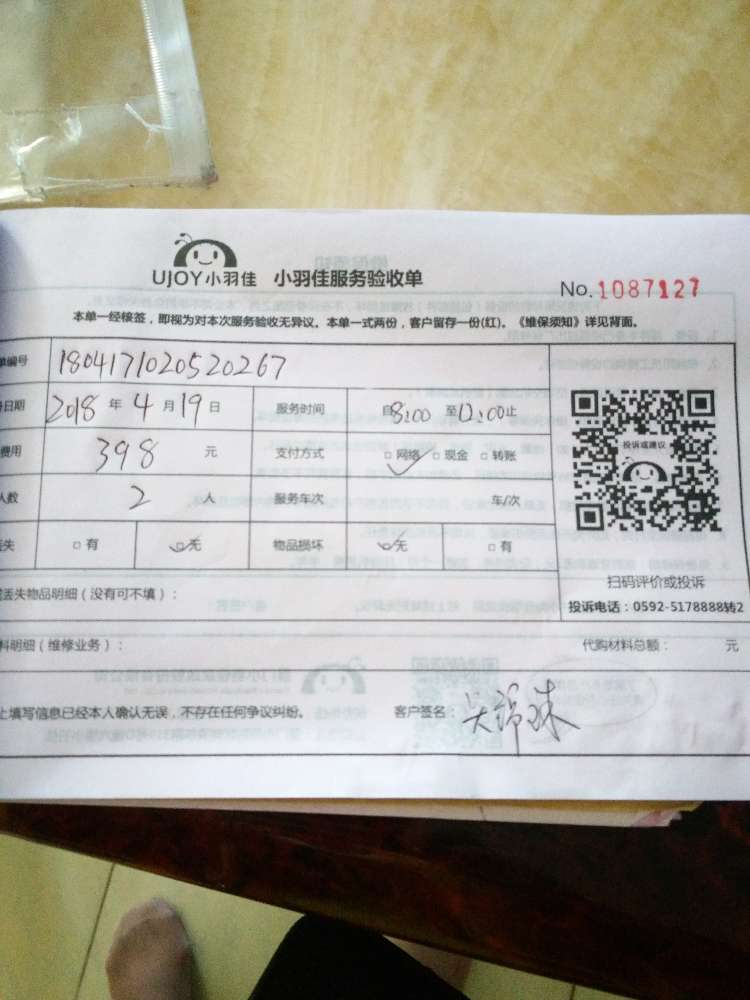 UJOY小羽佳 小羽佳服务验收单
No.1087127
本单一经接签，即视为对本次服务验收无异议。本单一式两份，客户留存一份(红)。《维保须知》详见背面。
单编号 180417102052026​7
日期 2018 年 4 月 19 日 服务时间 自8:00 至12:00止
费用 398 元 支付方式 网络 现金 转账
人数 2 人 服务车次 车/次
丢失 有 无 物品损坏 无 有
投诉或建议
扫码评价或投诉
投诉电话：0592-5178888转2
丢失物品明细（没有可不填）：
料明细（维修业务）： 代购材料总额： 元
上填写信息已经本人确认无误，不存在任何争议纠纷。 客户签名：